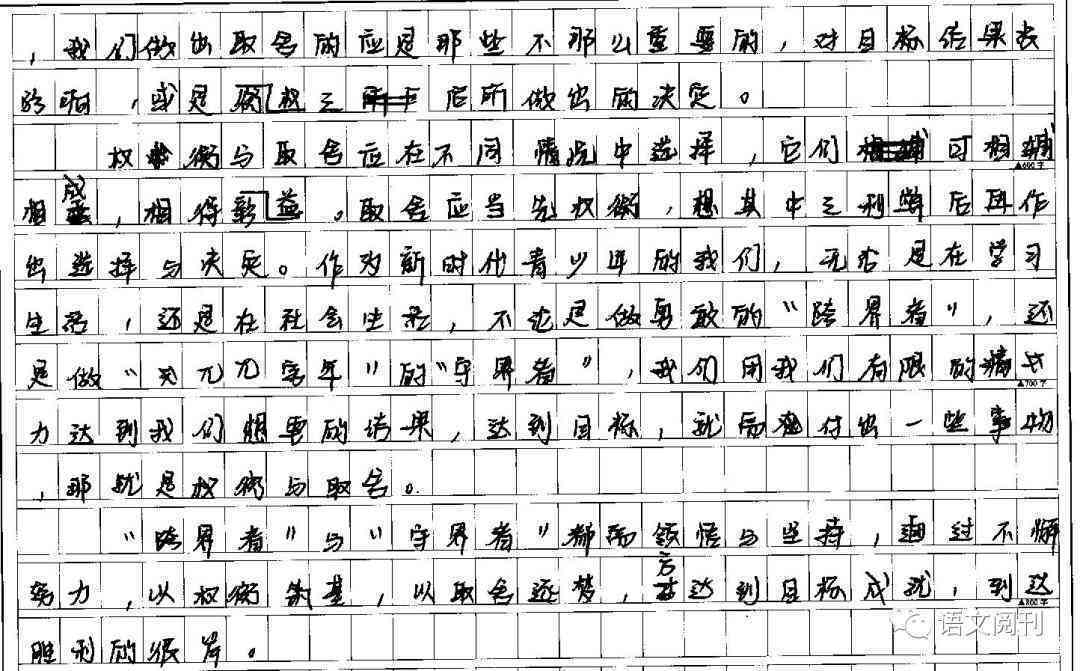 ，我们做出取舍的应是那些不那么重要的，对目标结果次
影响，或是权之后所做出的决定。
权衡与取舍应在不同情况中选择，它们可相辅
▲600字
相成，相得彰益。取舍应当先权衡，想其中之利弊后再作
出选择与决定。作为新时代青少年的我们，无论是在学习
生活，还是在社会生活，不论是做勇敢的“跨界者”，还
是做“兀兀穷年”的“守界者”，我们用我们有限的精
▲700字
力达到我们想要的结果，达到目标，就需付出一些事物
，那就是权衡与取舍。
“跨界者”与“守界者”都需领悟与坚持，通过不懈
努力，以权衡筑基，以取舍逐梦，方达到目标成就，到达
▲800字
胜利的彼岸。
语文阅刊